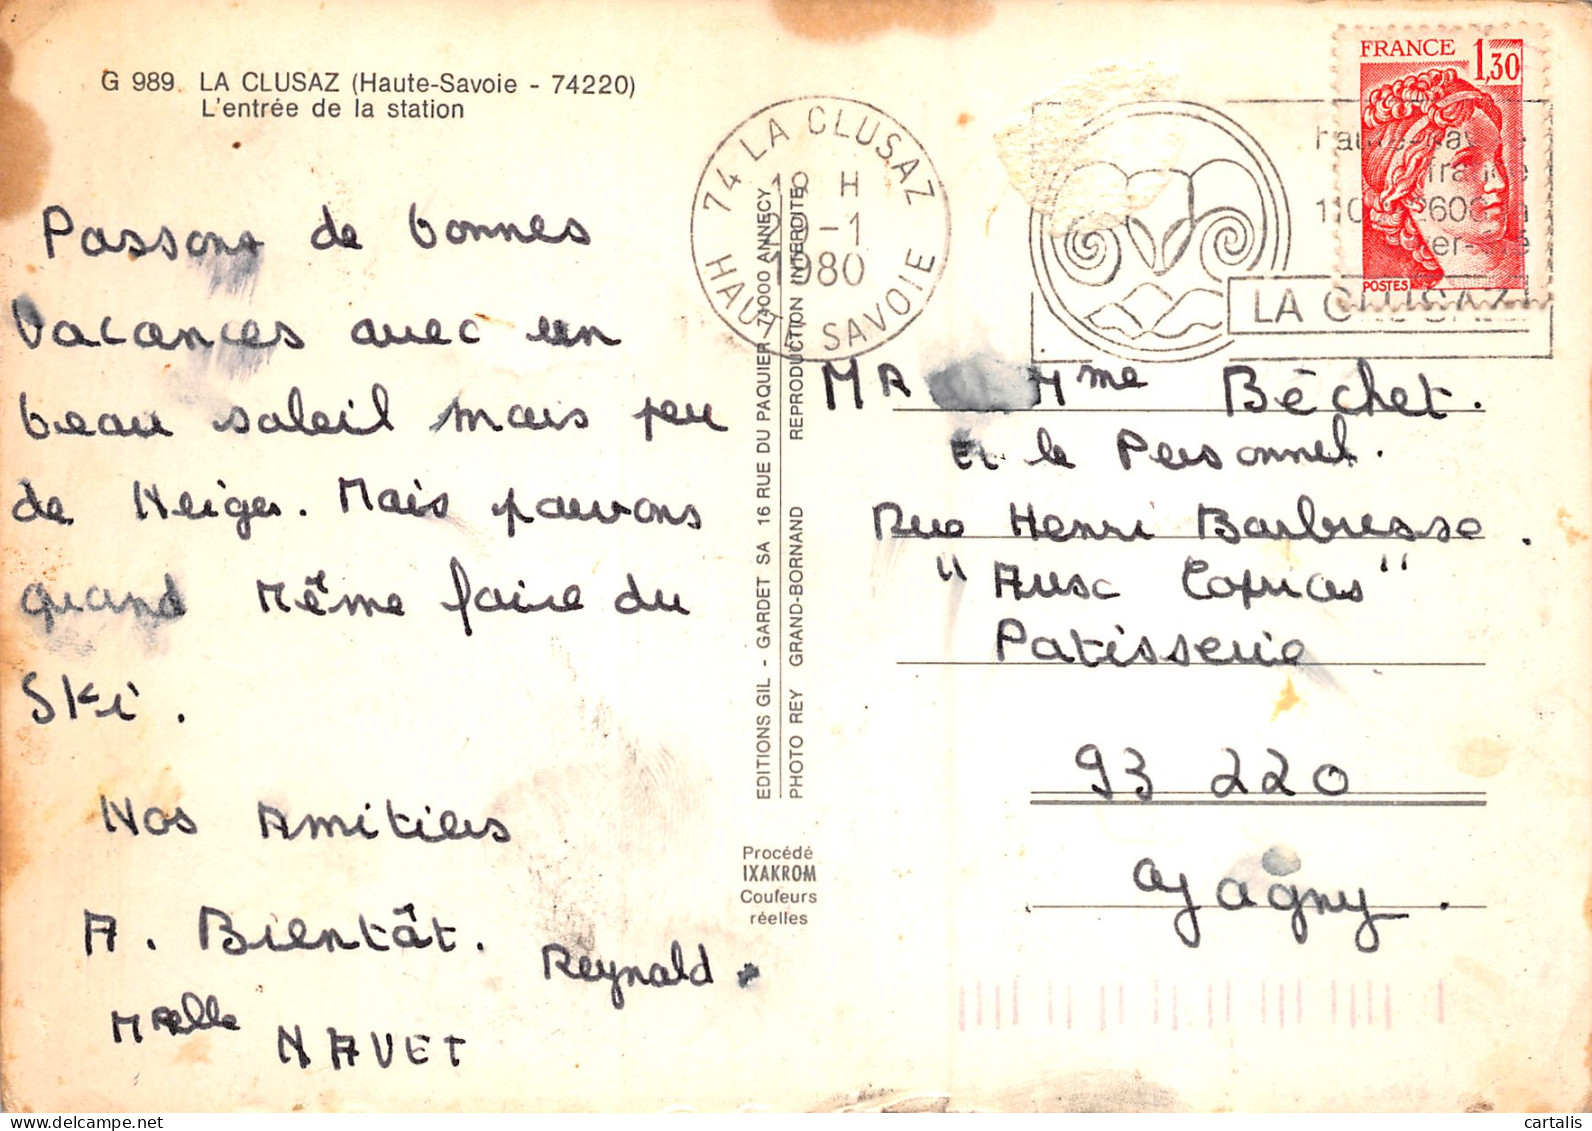 G 989. LA CLUSAZ (Haute-Savoie - 74220)
L'entrée de la station
Passons de bonnes
Vacances avec un
beau soleil mais peu
de Neige. Mais pouvons
quand Même faire du
Ski.
Nos Amitiés
A. Bientât.
Reynald
Melle
NAVET
EDITIONS GIL - GARDET SA 16 RUE DU PAQUIER 74000 ANNECY
PHOTO REY GRAND-BORNAND REPRODUCTION INTERDITE
Procédé
IXAKROM
Couleurs
réelles
74 LA CLUSAZ
H
-1
1980
HAUTE SAVOIE
FRANCE 1,30
POSTES
france
LA CLUSAZ
MR Mme Béchet.
et le Personnel.
Rue Henri Barbusse.
"Ausc "
Patisserie
93 220
Gagny.
cartalis